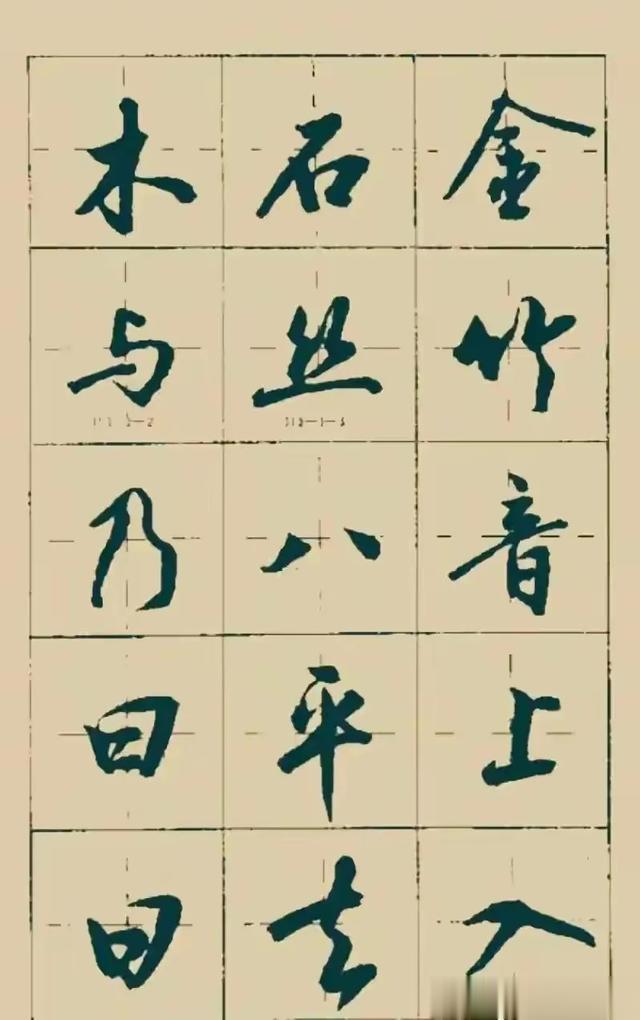 木石金
与丝竹
乃八音
曰平上
曰去入